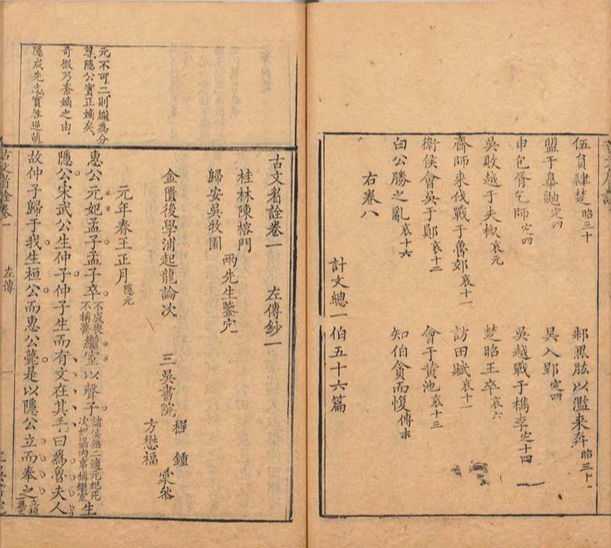 伍員肄楚昭三十
邾黑肱以濫來奔昭三十一
盟于皋鼬定四
吳入郢定四
申包胥乞師定四
吳越戰于檇李定十四
吳敗越于夫椒哀元
楚昭王卒哀六
齊師來伐戰于魯郊哀十一
訪田賦哀十一
衛侯會吳于鄖哀十二
會于黃池哀十三
白公勝之亂哀十六
知伯貪而愎傳末
右卷八
計文總一伯五十六篇
古文眉詮卷一 左傳鈔一
桂林陳榕門
歸安吳牧園
兩先生鑒定
金匱後學浦起龍論次 三吳書院
程鍾
方懋福
參
元年春王正月隱元
惠公元妃孟子孟子卒不成喪不稱薨繼室以聲子諸侯無二適元妃死次妃攝內事稱繼室生
隱公宋武公生仲子仲子生而有文在其手曰為魯夫人
故仲子歸于我生桓公而惠公薨是以隱公立而奉之
元不可二則繼為分
隱公實正嫡矣
奇微乃奪嫡之由
隱成先志實
古文眉詮卷一
左傳
一